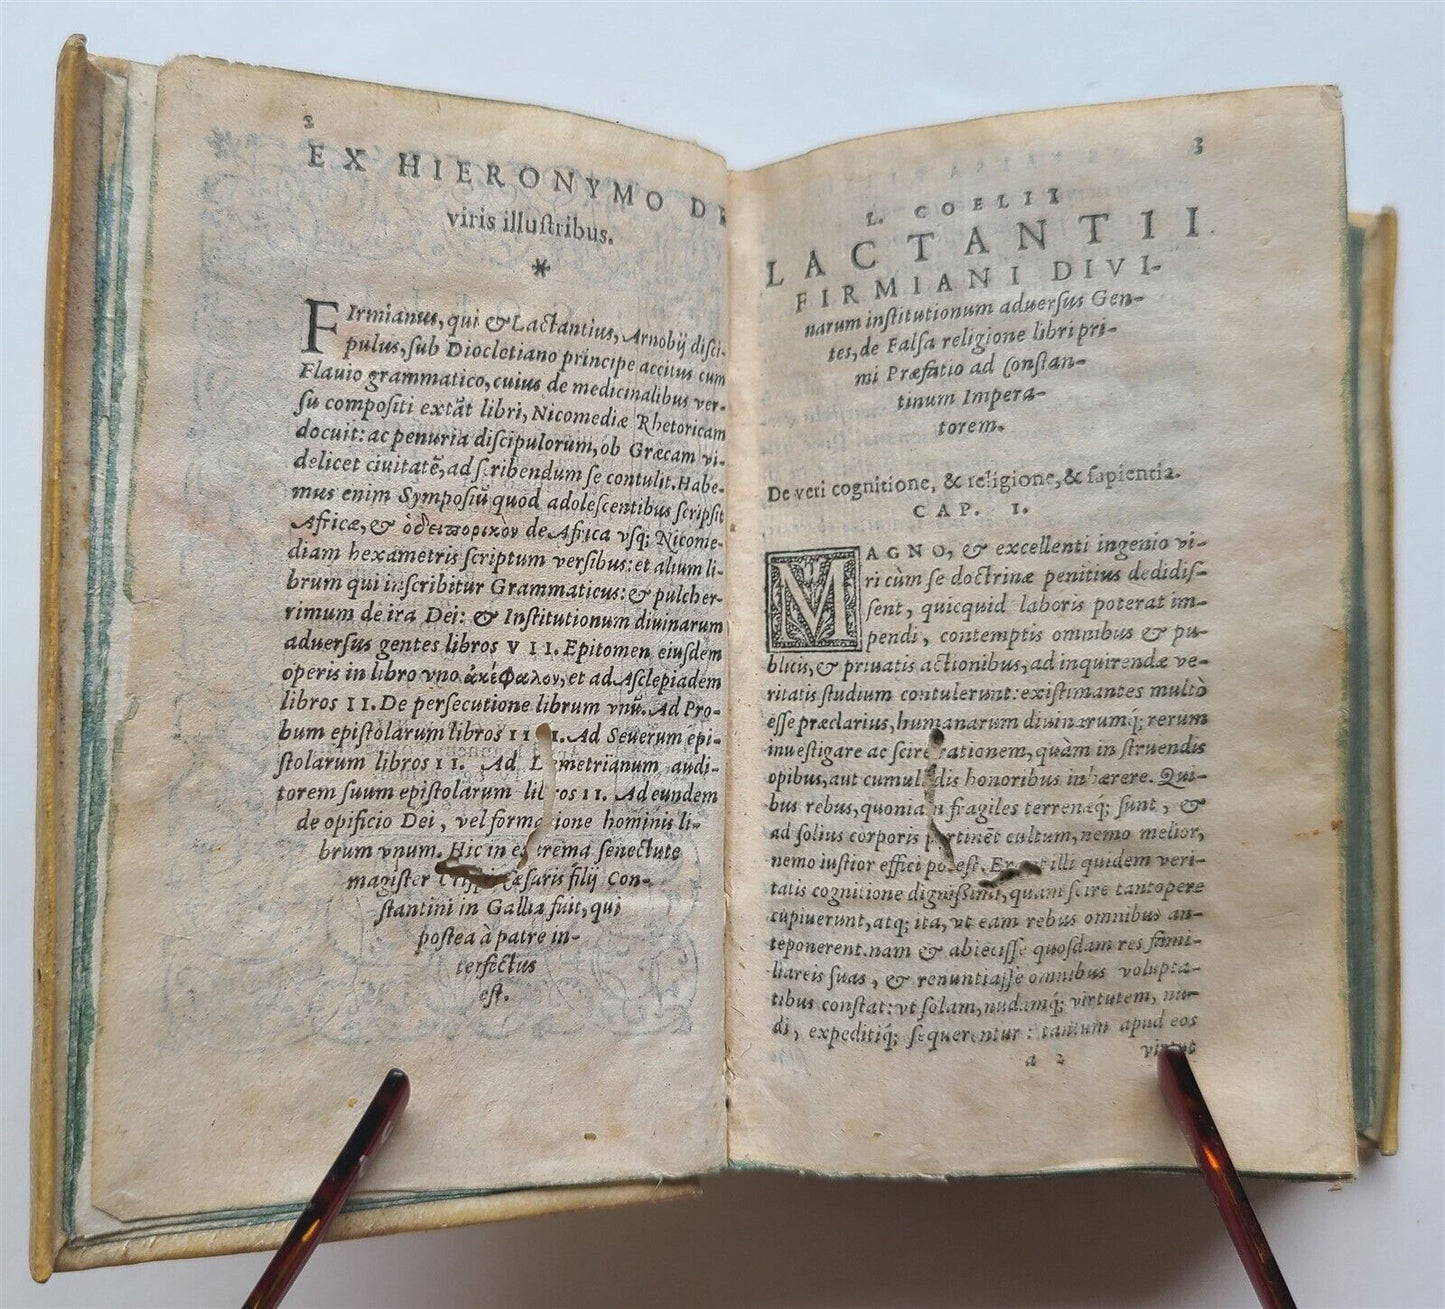 2
EX HIERONYMO DE
viris illustribus.
*
FIrmianus, qui & Lactantius, Arnobij disci-
pulus, sub Diocletiano principe accitus cum
Flauio grammatico, cuius de medicinalibus ver-
su compositi extāt libri, Nicomediæ Rhetoricam
docuit: ac penuria discipulorum, ob Græcam vi-
delicet ciuitatē, ad scribendum se contulit. Habe-
mus enim Symposiū quod adolescentibus scripsit
Africæ, & ὁδειπορικὸν de Africa vsq; Nicome-
diam hexametris scriptum versibus: et alium li-
brum qui inscribitur Grammaticus: & pulcher-
rimum de ira Dei: & Institutionum diuinarum
aduersus gentes libros VII. Epitomen eiusdem
operis in libro vno ἀκέφαλον, et ad Asclepiadem
libros II. De persecutione librum vnū. Ad Pro-
bum epistolarum libros IIII. Ad Seuerum epi-
stolarum libros II. Ad Demetrianum audi-
torem suum epistolarum libros II. Ad eundem
de opificio Dei, vel formatione hominis li-
brum vnum. Hic in extrema senectute
magister Crispi Cæsaris filij Con-
stantini in Gallia fuit, qui
postea à patre in-
terfectus
est.
3
L. COELII
LACTANTII
FIRMIANI DIVI-
narum institutionum aduersus Gen-
tes, de Falsa religione libri pri-
mi Præfatio ad Constan-
tinum Impera-
torem.
De veri cognitione, & religione, & sapientia.
CAP. I.
MAGNO, & excellenti ingenio vi-
ri cùm se doctrinæ penitius dedidis-
sent, quicquid laboris poterat im-
pendi, contemptis omnibus & pu-
blicis, & priuatis actionibus, ad inquirendæ ve-
ritatis studium contulerunt: existimantes multò
esse præclarius, humanarum diuinarumq́; rerum
inuestigare ac scire rationem, quàm in struendis
opibus, aut cumulādis honoribus inhærere. Qui-
bus rebus, quoniam fragiles terrenæq́; sunt, &
ad solius corporis pertinēt cultum, nemo melior,
nemo iustior effici potest. Erant illi quidem veri-
tatis cognitione dignissimi, quam scire tantopere
cupiuerunt, atq; ita, vt eam rebus omnibus an-
teponerent. nam & abiecisse quosdam res fami-
liareis suas, & renuntiasse omnibus volupta-
tibus constat: vt solam, nudamq́; virtutem, nu-
di, expeditiq́; sequerentur: tantum apud eos
a 2 virtut